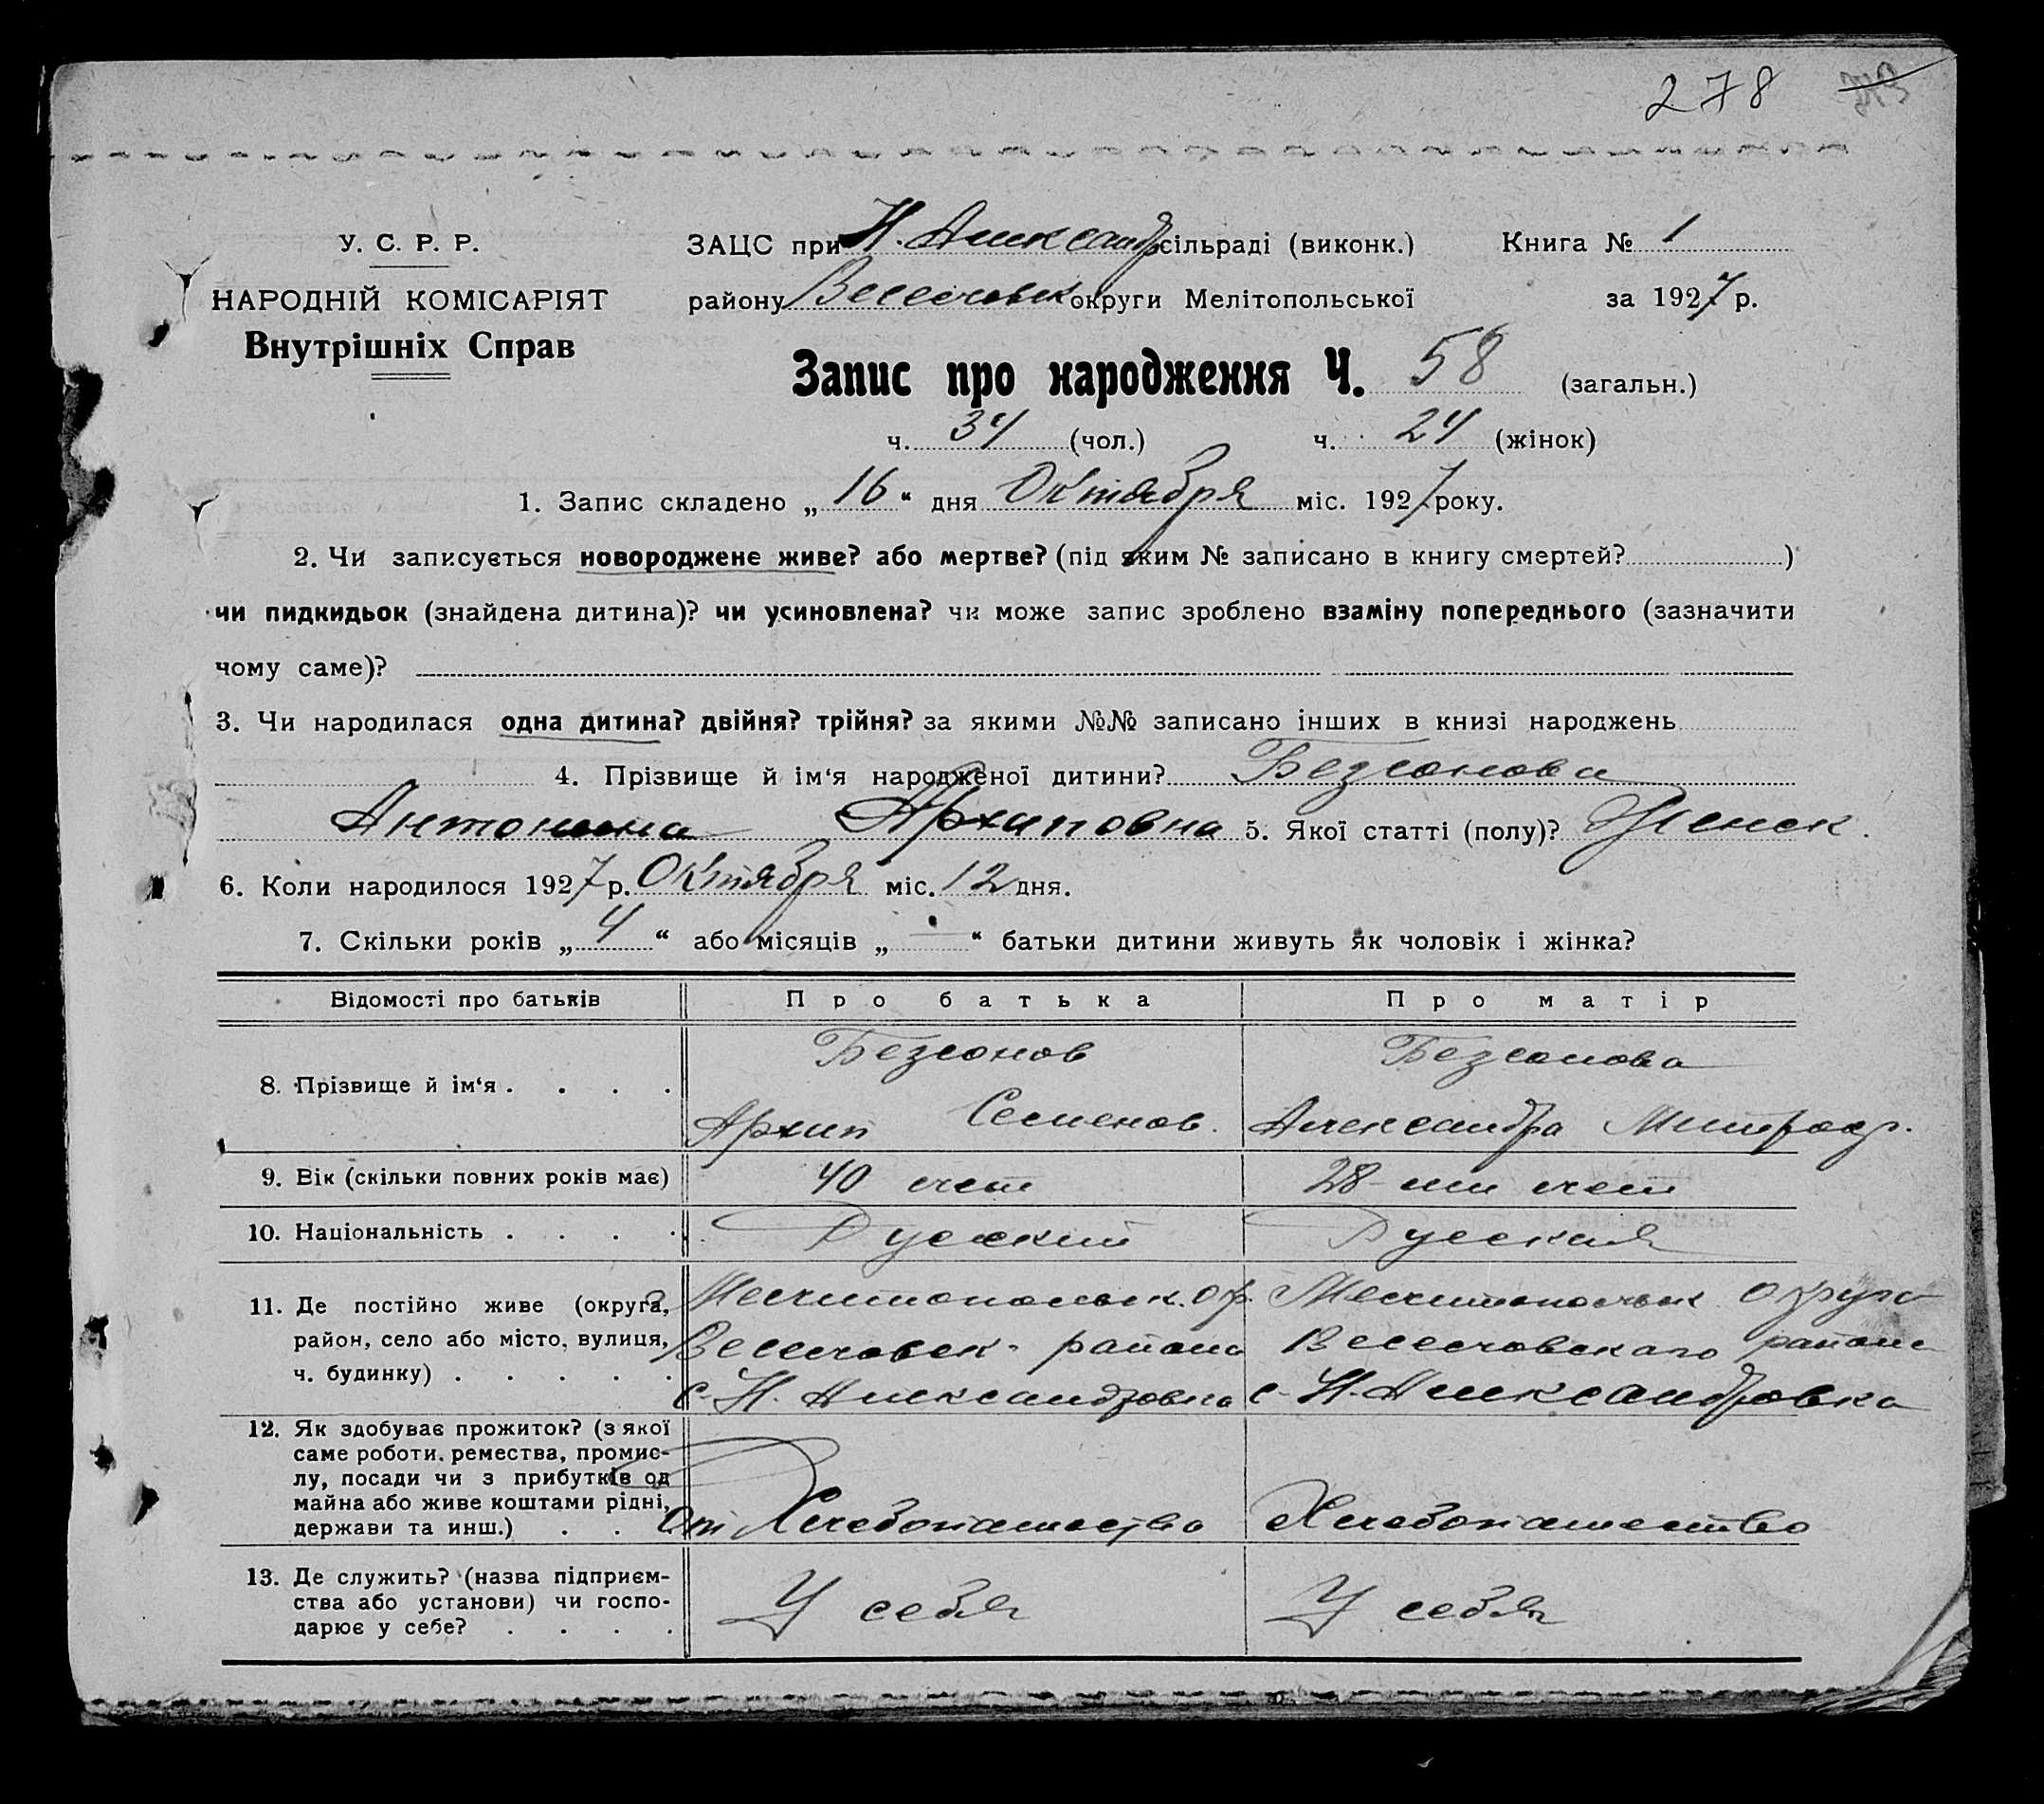 278
У. С. Р. Р.
НАРОДНІЙ КОМІСАРІЯТ
Внутрішніх Справ
ЗАЦС при Н. Александр сільраді (виконк.) Книга № 1
району Веселовск округи Мелітопольської за 1927 р.
Запис про народження Ч. 58 (загальн.)
ч. 34 (чол.) ч. 24 (жінок)
1. Запис складено „16“ дня Октября міс. 1927 року.
2. Чи записується новороджене живе? або мертве? (під яким № записано в книгу смертей? )
чи пидкидьок (знайдена дитина)? чи усиновлена? чи може запис зроблено взаміну попереднього (зазначити
чому саме)?
3. Чи народилася одна дитина? двійня? трійня? за якими №№ записано інших в книзі народжень
4. Прізвище й ім‘я народженої дитини? Безсонова
Антонина Архиповна 5. Якої статті (полу)? Женск.
6. Коли народилося 1927 р. Октября міс. 12 дня.
7. Скільки років „4“ або місяців „-“ батьки дитини живуть як чоловік і жінка?
Відомості про батьків Про батька Про матір
8. Прізвище й ім‘я . . . . Безсонов Архип Семенов. Безсонова Александра Митроф.
9. Вік (скільки повних років має) 40 лет 28-ми лет
10. Національність . . . . Русский Русская
11. Де постійно живе (округа, Мелитопольск. окр. Мелитопольск округа
район, село або місто, вулиця, Веселовск. района Веселовскаго района
ч. будинку) . . . . . с. Н. Александровка с. Н. Александровка
12. Як здобуває прожиток? (з якої
саме роботи, ремества, промис-
лу, посади чи з прибутків од
майна або живе коштами рідні,
держави та инш.) . . . От Хлебопашество Хлебопашество
13. Де служить? (назва підприєм-
ства або установи) чи госпо-
дарює у себе? . . . . У себя У себя